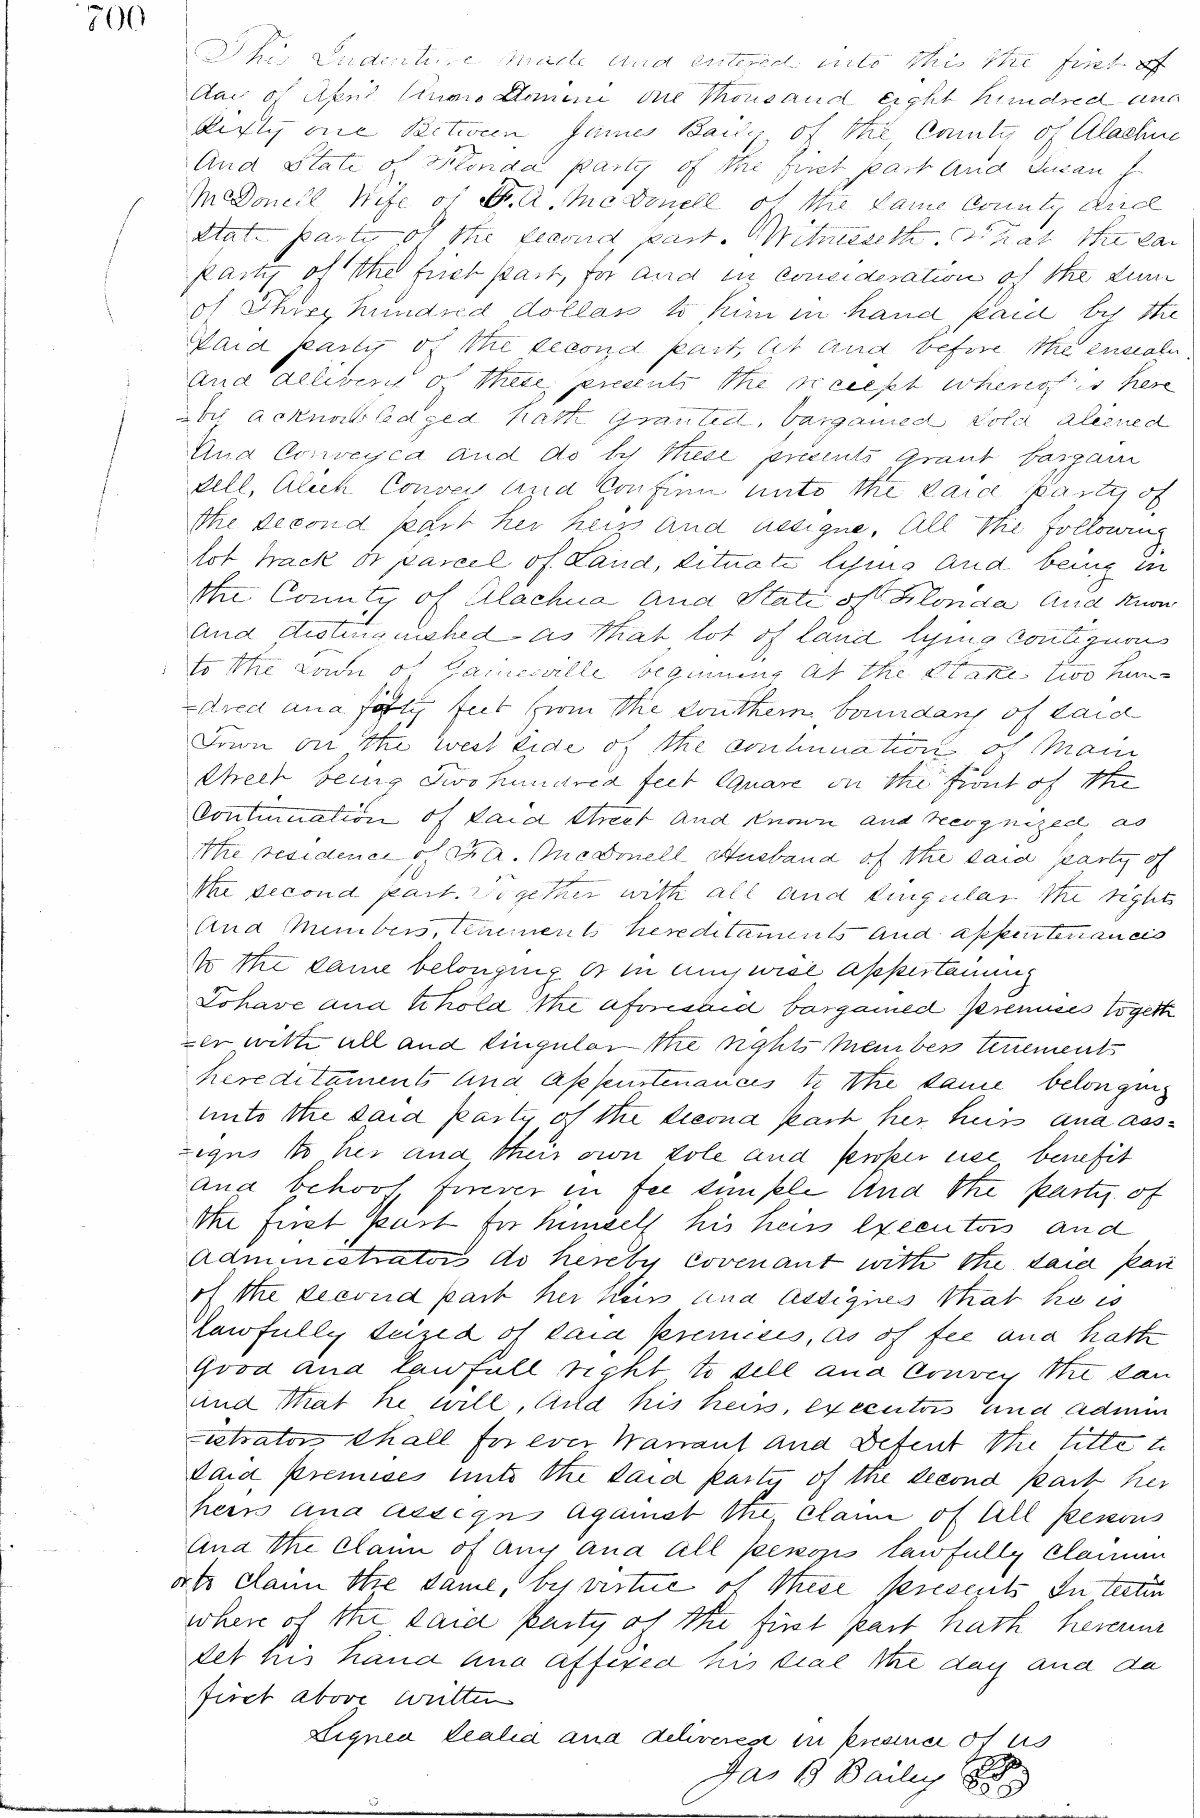 700
This Indenture made and entered into this the first of
day of April Anno Domini one thousand eight hundred and
sixty one Between James Baily of the County of Alachua
and State of Florida party of the first part and Susan J
McDonell Wife of F. A. McDonell of the same County and
State party of the second part. Witnesseth. That the sai
party of the first part, for and in consideration of the sum
of Three hundred dollars to him in hand paid by the
said party of the second part, at and before the ensealin
and delivery of these presents the reciept whereof is here
=by acknowledged hath granted, bargained sold aliened
and Conveyed and do by these presents grant bargain
sell, alien Convey and Confirm unto the said party of
the second part her heirs and assigns, all the following
lot track or parcel of Land, situate lying and being in
the County of Alachua and State of Florida and Know
and distinguished as that lot of land lying contiguous
to the Town of Gainesville beginning at the Stake two hun=
=dred and forty feet from the southern boundary of said
Town on the west side of the continuation of Main
Street being Two hundred feet Square on the front of the
Continuation of said Street and Known and recognized as
the residence of F. A. McDonell Husband of the said party of
the second part. Together with all and singular the rights
and members, tenements hereditaments and appurtenances
to the same belonging or in any wise appertaining
To have and to hold the aforesaid bargained premises togeth
=er with all and singular the rights members tenements
hereditaments and appurtenances to the same belonging
unto the said party of the second part her heirs and ass=
=igns to her and their own sole and proper use benefit
and behoof forever in fee simple And the party of
the first part for himself his heirs executors and
administrators do hereby covenant with the said part
of the second part her heirs and assignes that he is
lawfully seized of said premises, as of fee and hath
good and lawfull right to sell and convey the sam
and that he will, and his heirs, executors and admin
=istrators shall for ever Warrant and Defent the title to
said premises unto the said party of the second part her
heirs and assigns against the claim of all persons
and the claim of any and all persons lawfully claimin
or to claim the same, by virtue of these presents In testim
where of the said party of the first part hath hereun
set his hand and affixed his seal the day and da
first above written
Signed Sealed and delivered in presence of us
Jas B Bailey